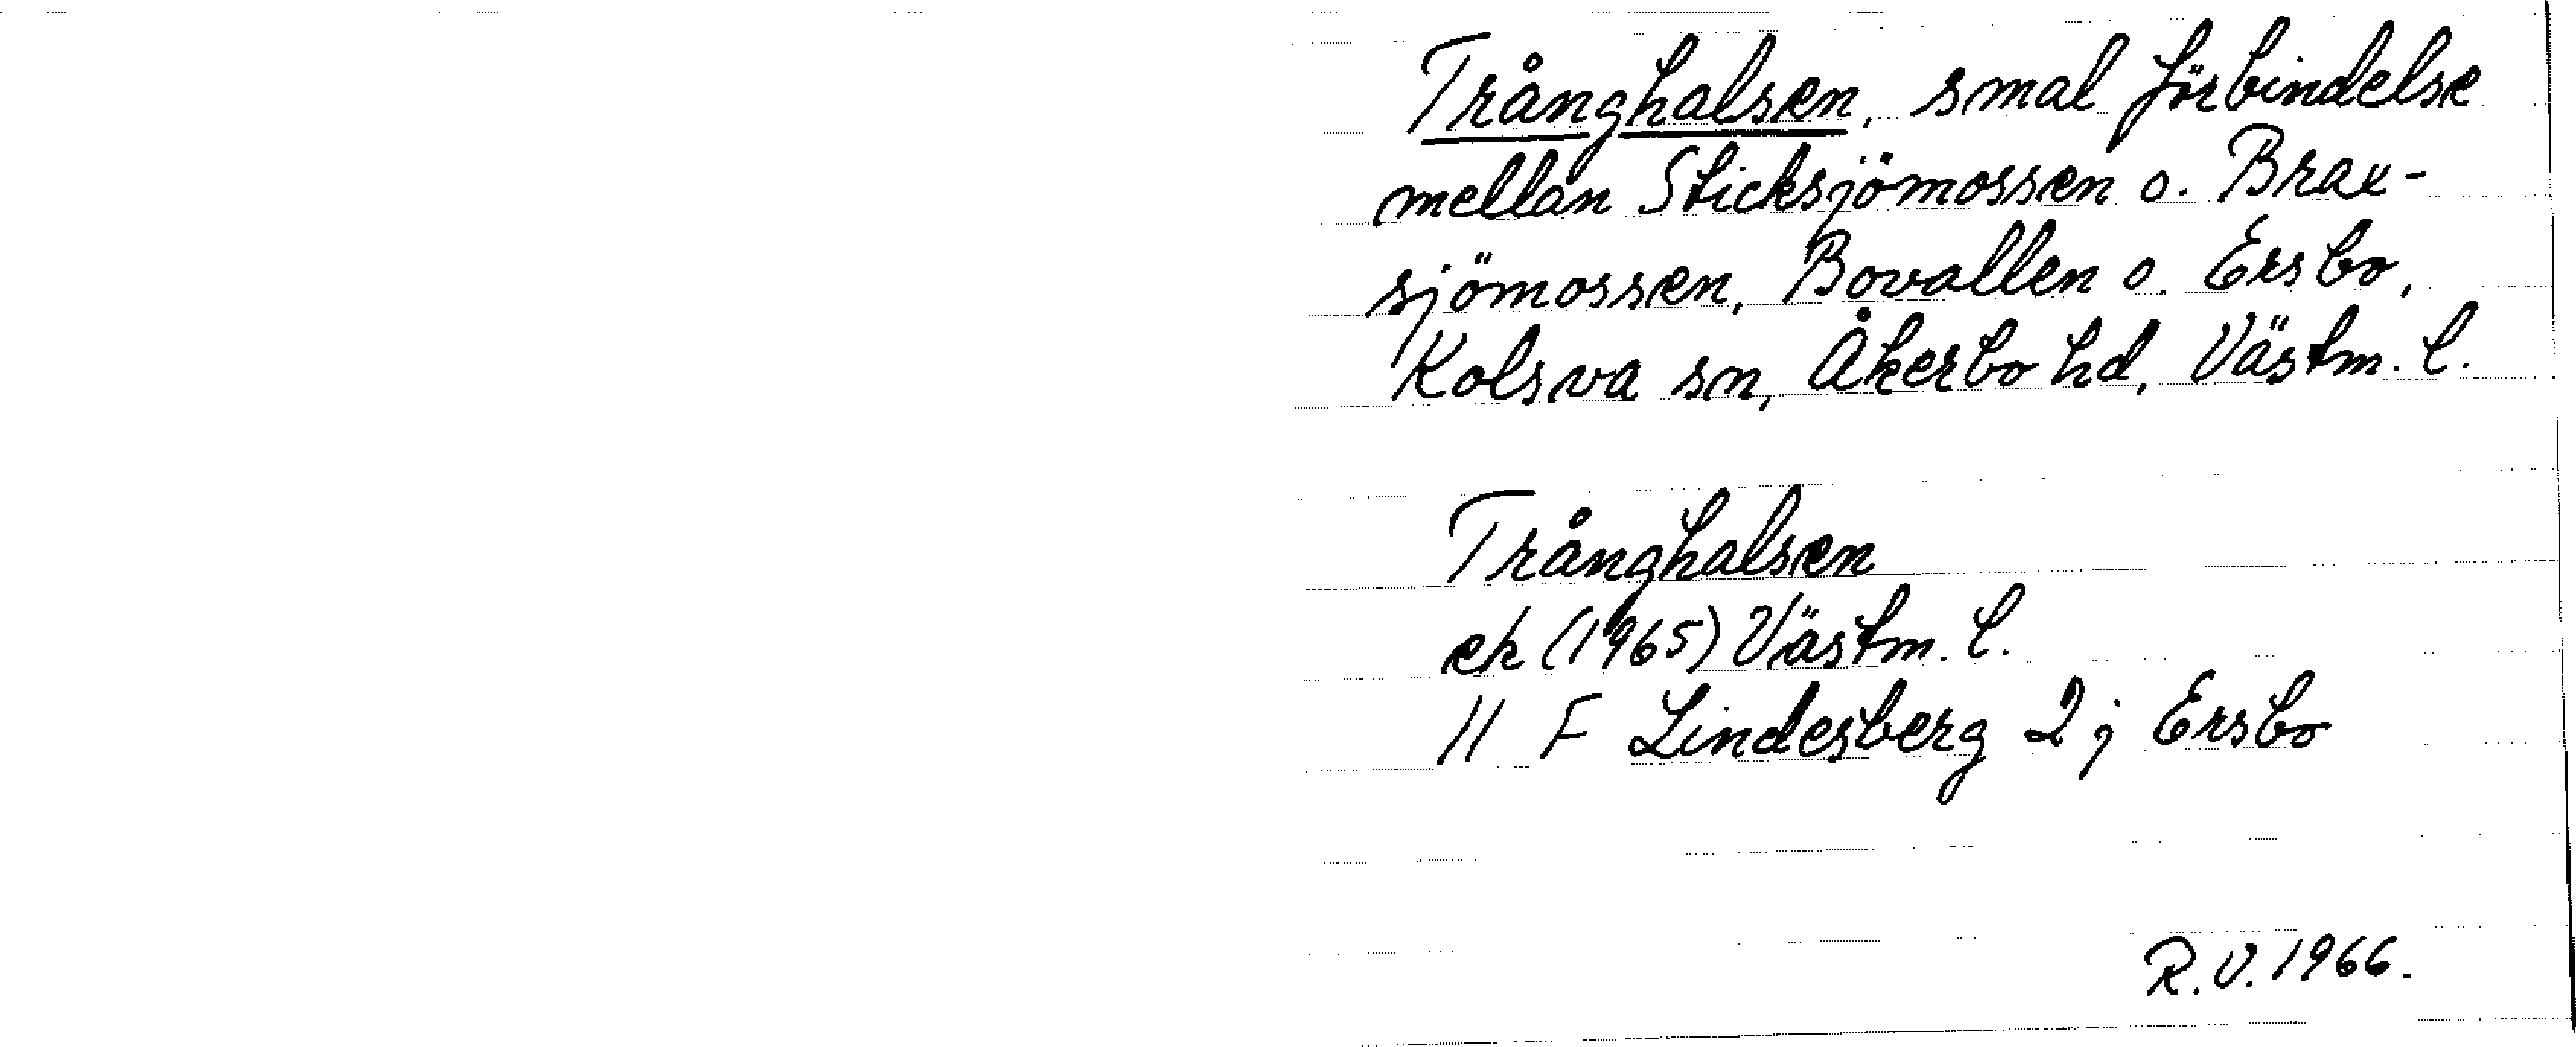 Trånghalsen, smal förbindelse
mellan Sticksjömossen o. Brax-
sjömossen, Bovallen o. Ersbo,
Kolsva sn, Åkerbo hd, Västm. l.
Trånghalsen
ek (1965) Västm. l.
11 F Lindesberg 2 j Ersbo
R.V. 1966.